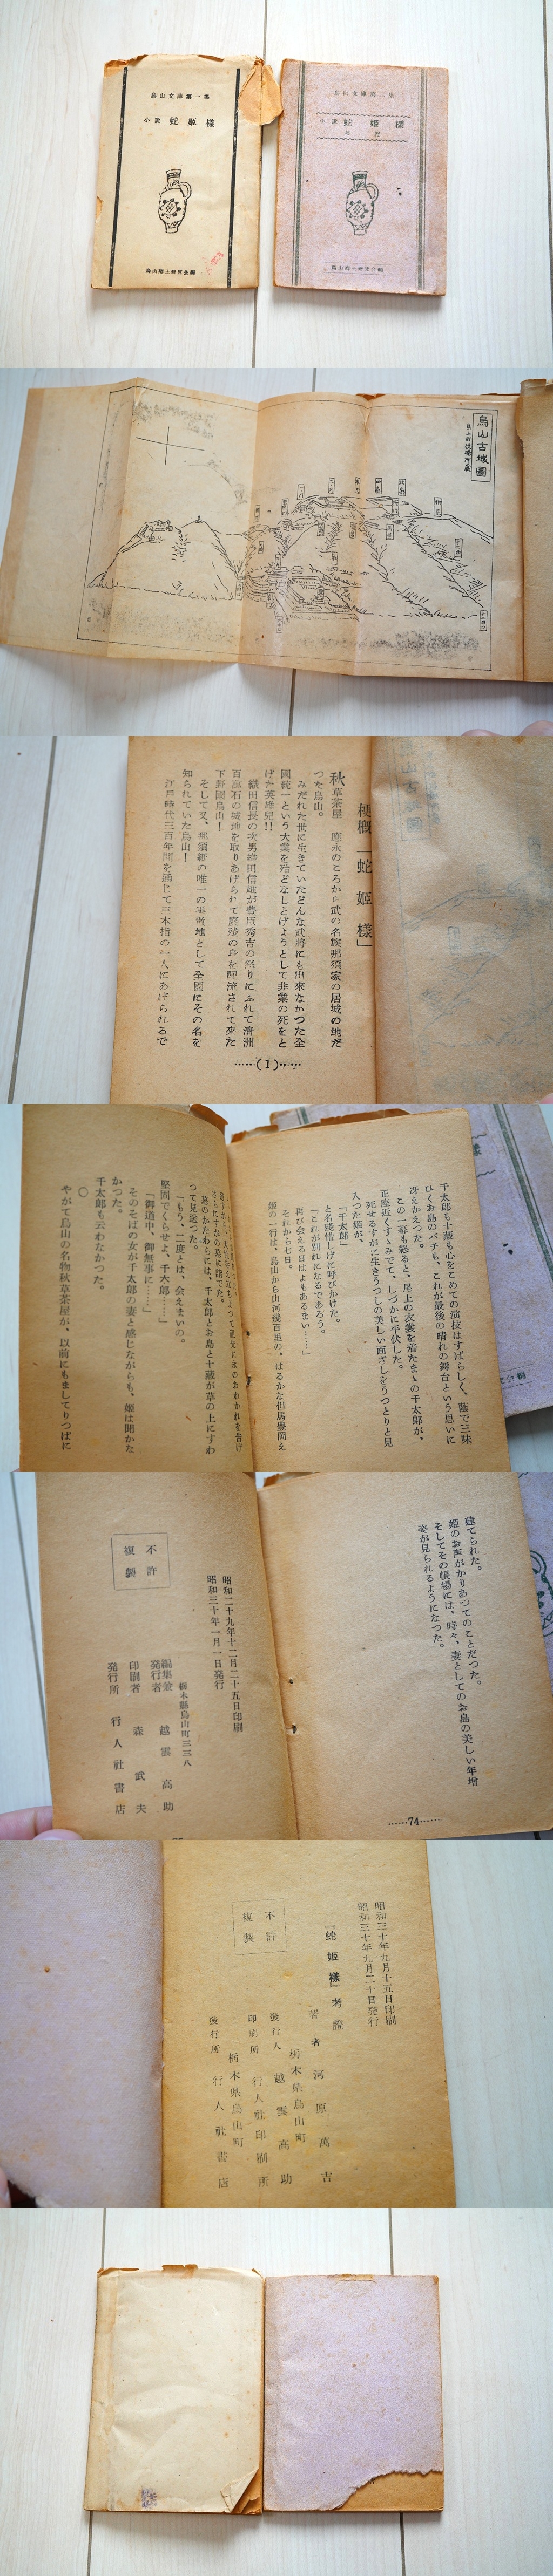 烏山文庫第一集
小説 蛇姫様
烏山郷土研究会編
烏山文庫第二集
小説 蛇姫様
考證
烏山郷土研究会編
烏山古城圖
梗概「蛇姫様」
秋草茶屋 應永のころから武の名族那須家の居城の地だ
つた烏山。
みだれた世に生きていたどんな武將にも出來なかつた全
國統一という大業を殆どなしとげようとして非業の死をと
げた英雄児!!
織田信長の次男織田信雄が豊臣秀吉の怒りにふれて清洲
百萬石の城地を取りあげられて
下野國烏山!
そして又、那須郷の唯一の
知られていた烏山!
江戸時代三百年間を通じて三本指の一人にあげられるで
……(1)……
千太郎も十蔵も心をこめての演技はすばらしく、藝で三味
ひくお島のバチも、これが最後の晴れの舞台という思いに
冴えかえつた。
この一幕も終ると、尾上の衣裳を着たまゝの千太郎が、
正座近くすゝみでて、しづかに平伏した。
死せるすがに生きうつしの美しい面ざしをうつとりと見
入つた姫が、
「千太郎」
と名残惜しげに呼びかけた。
「これが別れになるであろう。
再び会える日はよもあるまい……」
それから七日。
姫の一行は、烏山から山河幾百里の、はるかな但馬豊岡え
さらにすがの墓に詣でた。
墓のかたわらには、千太郎とお島と十蔵が草の上にすわ
つて見送つた。
「もう、二度とは、会えまいの。
堅固でくらせよ、千太郎……」
「御道中、御無事に……」
そのそばの女が千太郎の妻と感じながらも、姫は聞かな
かつた。
千太郎も云わなかつた。
○
やがて烏山の名物秋草茶屋が、以前にもましてりつぱに
建てられた。
姫のお声がかりあつてのことだつた。
そしてその帳場には、時々、妻としてのお島の美しい年増
姿が見られるようになつた。
……74……
昭和二十九年十二月二十五日印刷
昭和三十年一月一日発行
不許
複製
栃木縣烏山町三三八
編集兼
発行者 越雲高助
印刷者 森武夫
発行所 行人社書店
昭和三十年九月十五日印刷
昭和三十年九月二十日発行
『蛇姫様』考證
不許
複製
著者 河原萬吉
栃木県烏山町
發行人 越雲高助
印刷所 行人社印刷所
栃木県烏山町
發行所 行人社書店